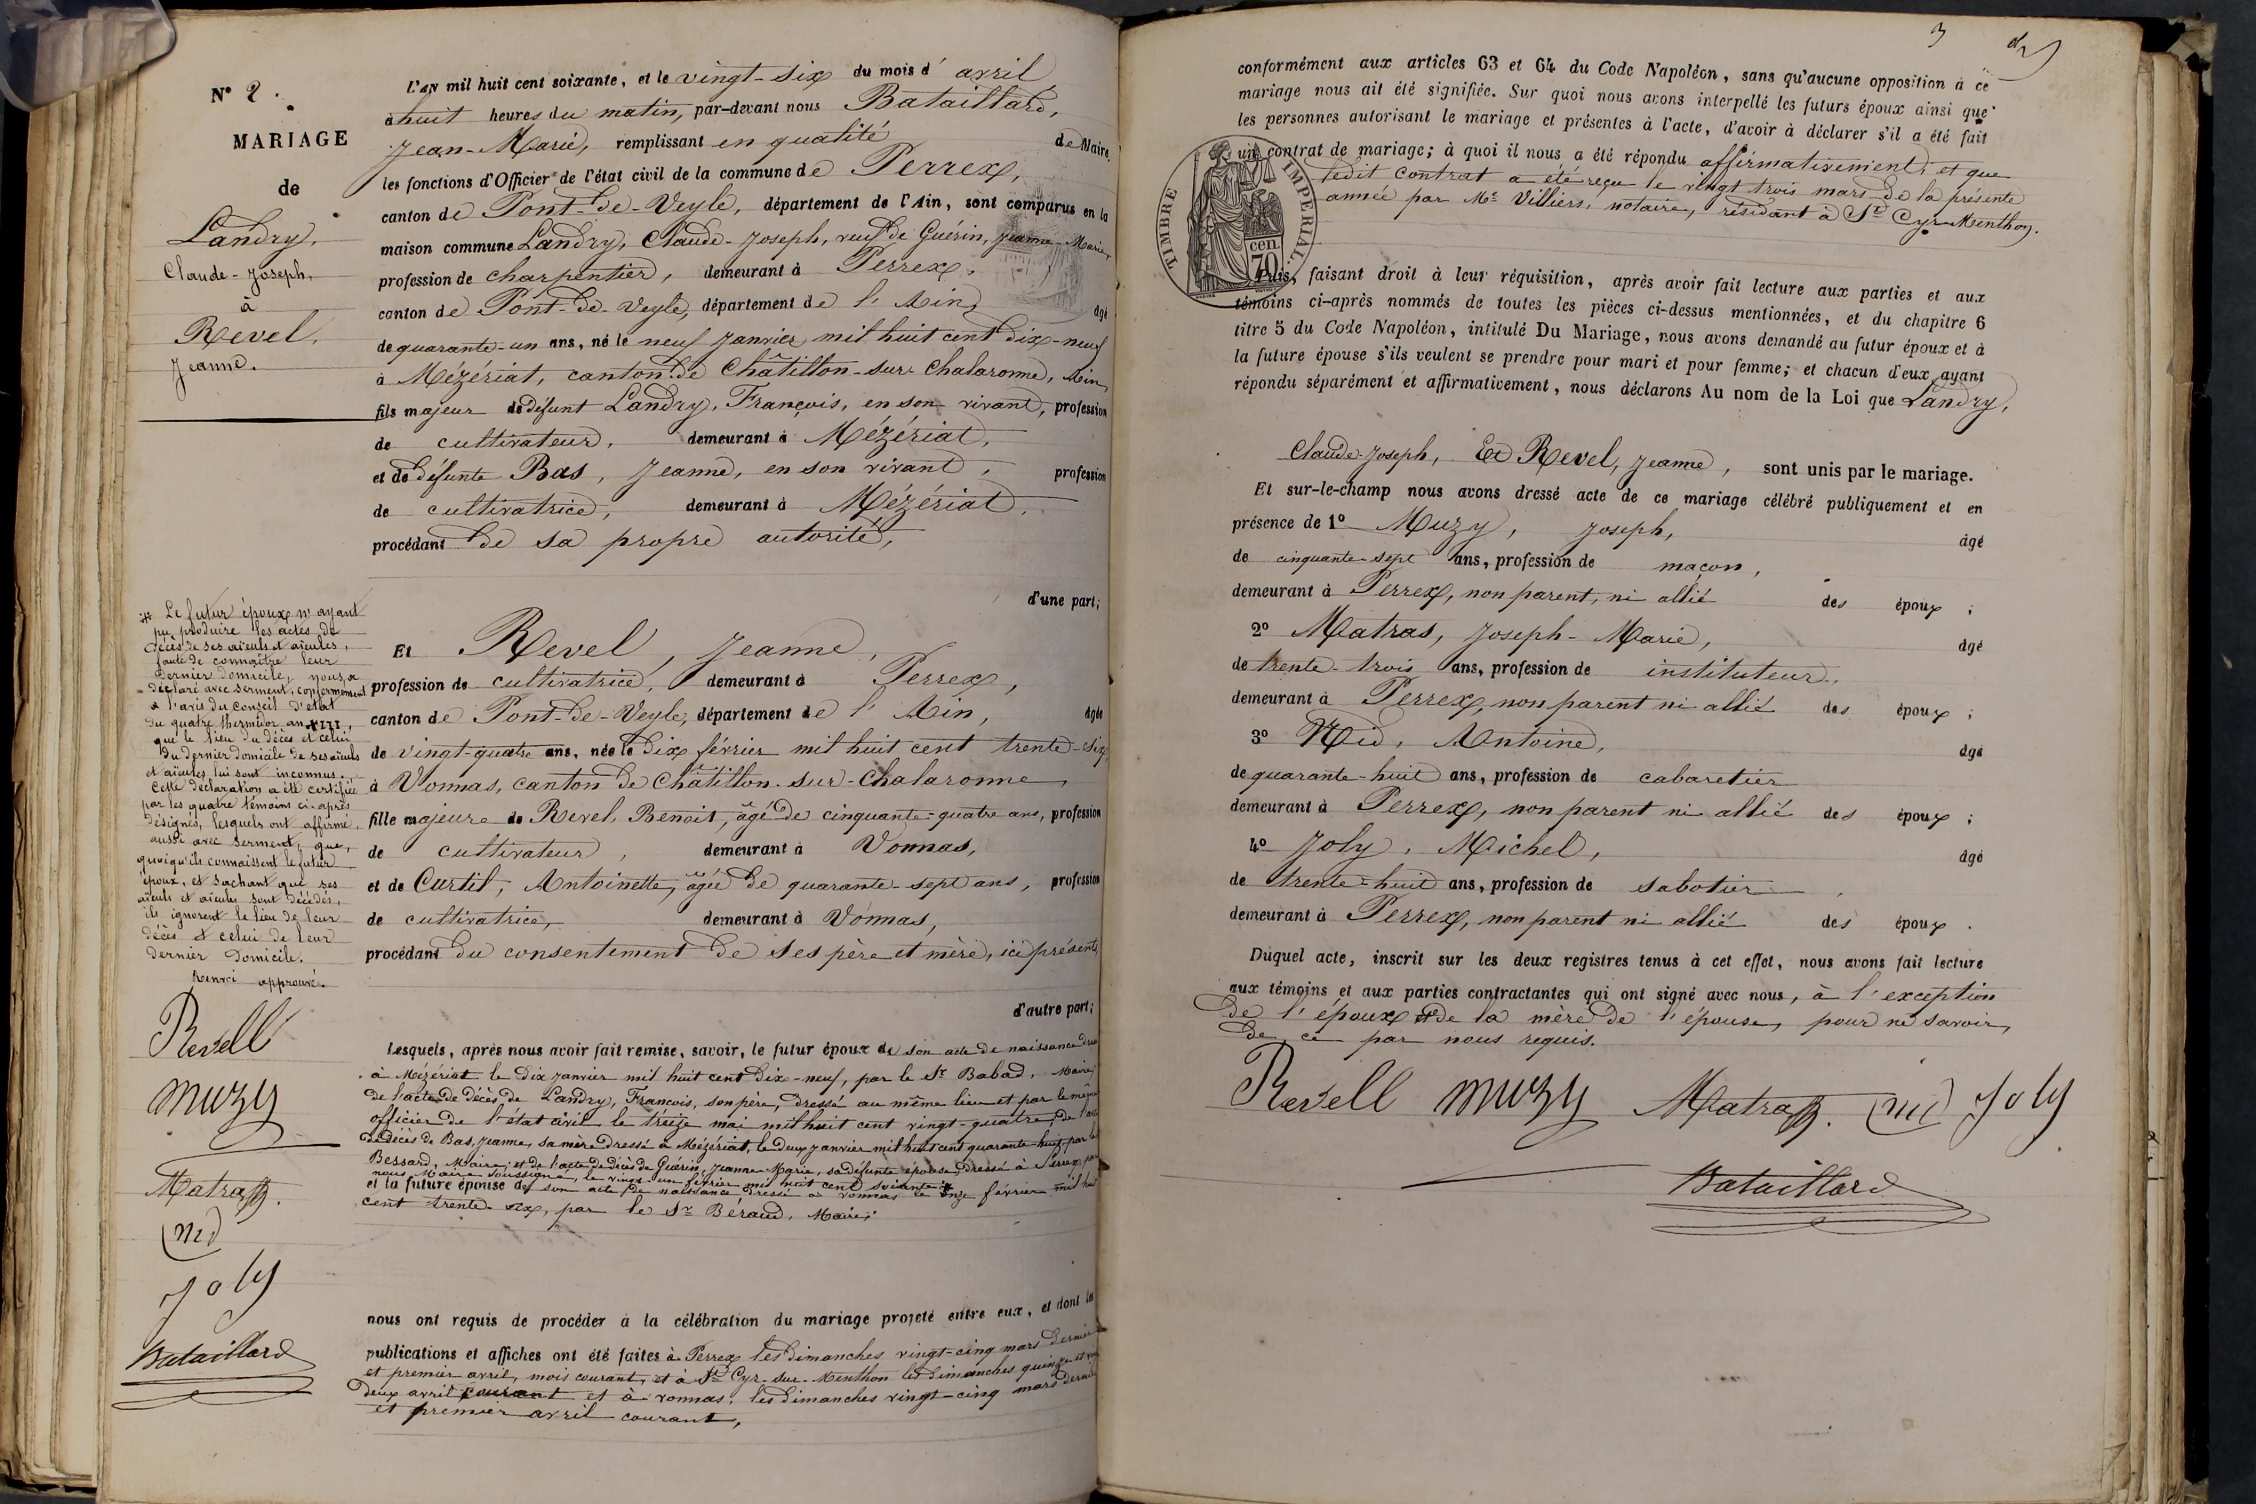 N° 2.
MARIAGE
de
Landry,
Claude-Joseph,
à
Revel,
Jeanne.
L'AN mil huit cent soixante, et le vingt-six du mois d'avril
à huit heures du matin, par-devant nous Bataillard,
Jean-Marie, remplissant en qualité de Maire,
les fonctions d'Officier de l'état civil de la commune de Perrex,
canton de Pont-de-Veyle, département de l'Ain, sont comparus en la
maison commune Landry, Claude-Joseph, veuf de Guérin, Jeanne-Marie,
profession de charpentier, demeurant à Perrex,
canton de Pont-de-Veyle, département de l'Ain, âgé
de quarante-un ans, né le neuf janvier mil huit cent dix-neuf
à Mézériat, canton de Châtillon-sur-Chalaronne, Ain,
fils majeur de défunt Landry, François, en son vivant, profession
de cultivateur, demeurant à Mézériat,
et de défunte Bas, Jeanne, en son vivant, profession
de cultivatrice, demeurant à Mézériat,
procédant de sa propre autorité,
d'une part;
Et Revel, Jeanne,
profession de cultivatrice, demeurant à Perrex,
canton de Pont-de-Veyle, département de l'Ain, âgée
de vingt-quatre ans, née le dix février mil huit cent trente-six,
à Vonnas, canton de Châtillon-sur-Chalaronne,
fille majeure de Revel, Benoit, âgé de cinquante-quatre ans, profession
de cultivateur, demeurant à Vonnas,
et de Curtil, Antoinette, âgée de quarante-sept ans, profession
de cultivatrice, demeurant à Vonnas,
procédant du consentement de ses père et mère, ici présents,
d'autre part;
Lesquels, après nous avoir fait remise, savoir, le futur époux de son acte de naissance
à Mézériat le dix janvier mil huit cent dix-neuf, par le Sr Babad, Maire,
de l'acte de décès de Landry, François, son père, dressé au même lieu et par le même
officier de l'état civil le treize mai mil huit cent vingt-quatre, de l'acte
de décès de Bas, Jeanne, sa mère dressé à Mézériat, le deux janvier mil huit cent quarante-huit, par le Sr
Bessard, Maire, et de l'acte de décès de Guérin, Jeanne-Marie, sa défunte épouse, dressé à Perrex, par
nous Maire soussigné, le vingt-un février mil huit cent soixante
et la future épouse de son acte de naissance dressé à Vonnas le onze février mil huit
cent trente-six, par le Sr Béraud, Maire;
nous ont requis de procéder à la célébration du mariage projeté entre eux, et dont les
publications et affiches ont été faites à Perrex les dimanches vingt-cinq mars dernier
et premier avril, mois courant, et à St Cyr-sur-Menthon les dimanches quinze et vingt
deux avril courant et à Vonnas, les dimanches vingt-cinq mars dernier
et premier avril courant,
* Le futur époux n'ayant
pu produire les actes de
décès de ses aïeuls et aïeules,
faute de connaître leur
dernier domicile, nous a
déclaré avec serment, conformément
à l'avis du conseil d'état
du quatre thermidor an XIII,
que le lieu du décès et celui
du dernier domicile de ses aïeuls
et aïeules lui sont inconnus.
Cette déclaration a été certifiée
par les quatre témoins ci-après
désignés, lesquels ont affirmé,
aussi avec serment, que,
quoiqu'ils connaissent le futur
époux, et sachant que ses
aïeuls et aïeules sont décédés,
ils ignorent le lieu de leur
décès et celui de leur
dernier domicile.
Renvoi approuvé.
Revell
Muzy
Matras
Nid
Joly
Bataillard
3
conformément aux articles 63 et 64 du Code Napoléon, sans qu'aucune opposition à ce
mariage nous ait été signifiée. Sur quoi nous avons interpellé les futurs époux ainsi que
les personnes autorisant le mariage et présentes à l'acte, d'avoir à déclarer s'il a été fait
un contrat de mariage; à quoi il nous a été répondu affirmativement, et que
ledit contrat a été reçu le vingt trois mars de la présente
année par Me Villiers, notaire, résidant à St Cyr-Menthon.
TIMBRE IMPERIAL
70 cen
Puis, faisant droit à leur réquisition, après avoir fait lecture aux parties et aux
témoins ci-après nommés de toutes les pièces ci-dessus mentionnées, et du chapitre 6
titre 5 du Code Napoléon, intitulé Du Mariage, nous avons demandé au futur époux et à
la future épouse s'ils veulent se prendre pour mari et pour femme; et chacun d'eux ayant
répondu séparément et affirmativement, nous déclarons Au nom de la Loi que Landry,
Claude-Joseph, Et Revel, Jeanne, sont unis par le mariage.
Et sur-le-champ nous avons dressé acte de ce mariage célébré publiquement et en
présence de 1° Muzy, Joseph, âgé
de cinquante-sept ans, profession de maçon,
demeurant à Perrex, non parent, ni allié des époux;
2° Matras, Joseph-Marie, âgé
de trente-trois ans, profession de instituteur.
demeurant à Perrex, non parent ni allié des époux;
3° Nid, Antoine, âgé
de quarante-huit ans, profession de cabaretier
demeurant à Perrex, non parent ni allié des époux;
4° Joly, Michel, âgé
de trente-huit ans, profession de sabotier
demeurant à Perrex, non parent ni allié des époux.
Duquel acte, inscrit sur les deux registres tenus à cet effet, nous avons fait lecture
aux témoins et aux parties contractantes qui ont signé avec nous, à l'exception
de l'époux et de la mère de l'épouse, pour ne savoir,
de ce par nous requis.
Revell Muzy Matras Nid Joly
Bataillard